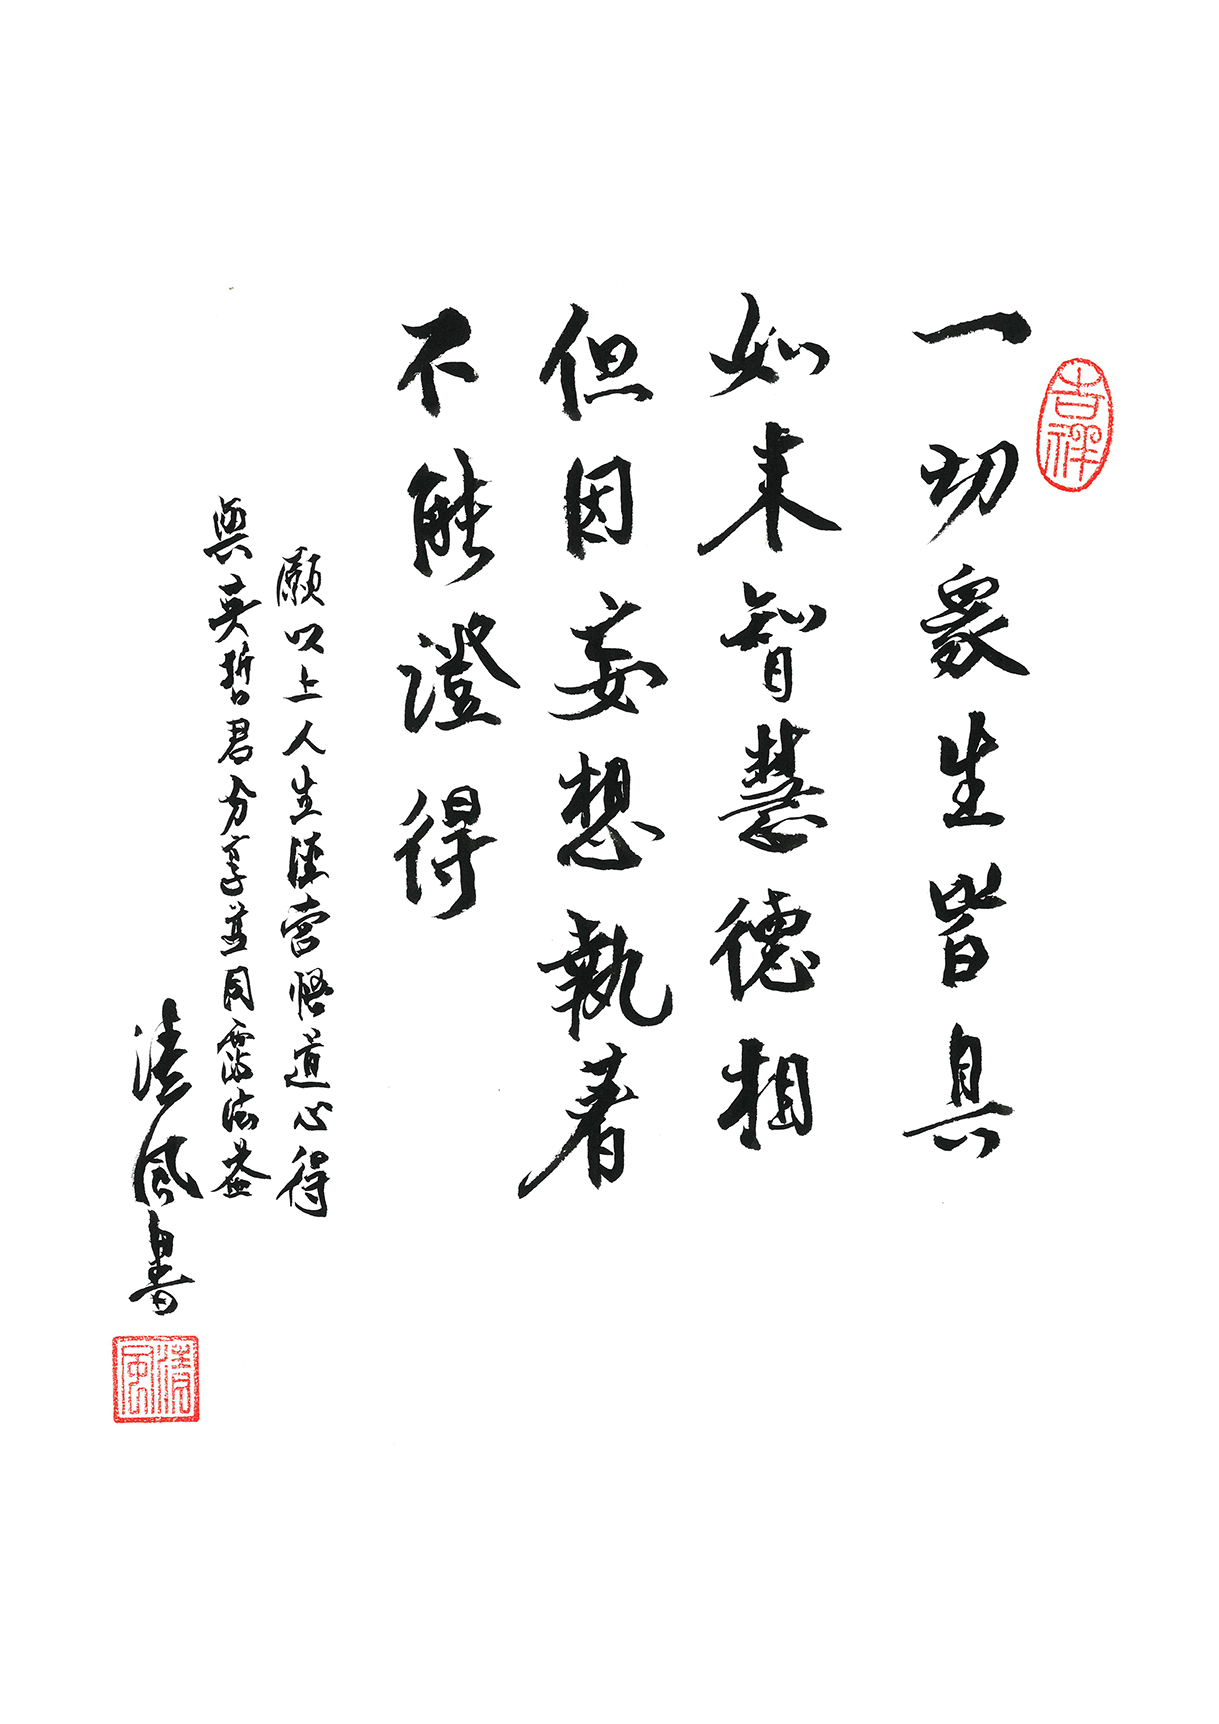 吉祥
一切眾生皆具
如来智慧德相
但因妄想執著
不能證得
願以上人生經營悟道心得
與英哲君分享並同霑法益
風書
風